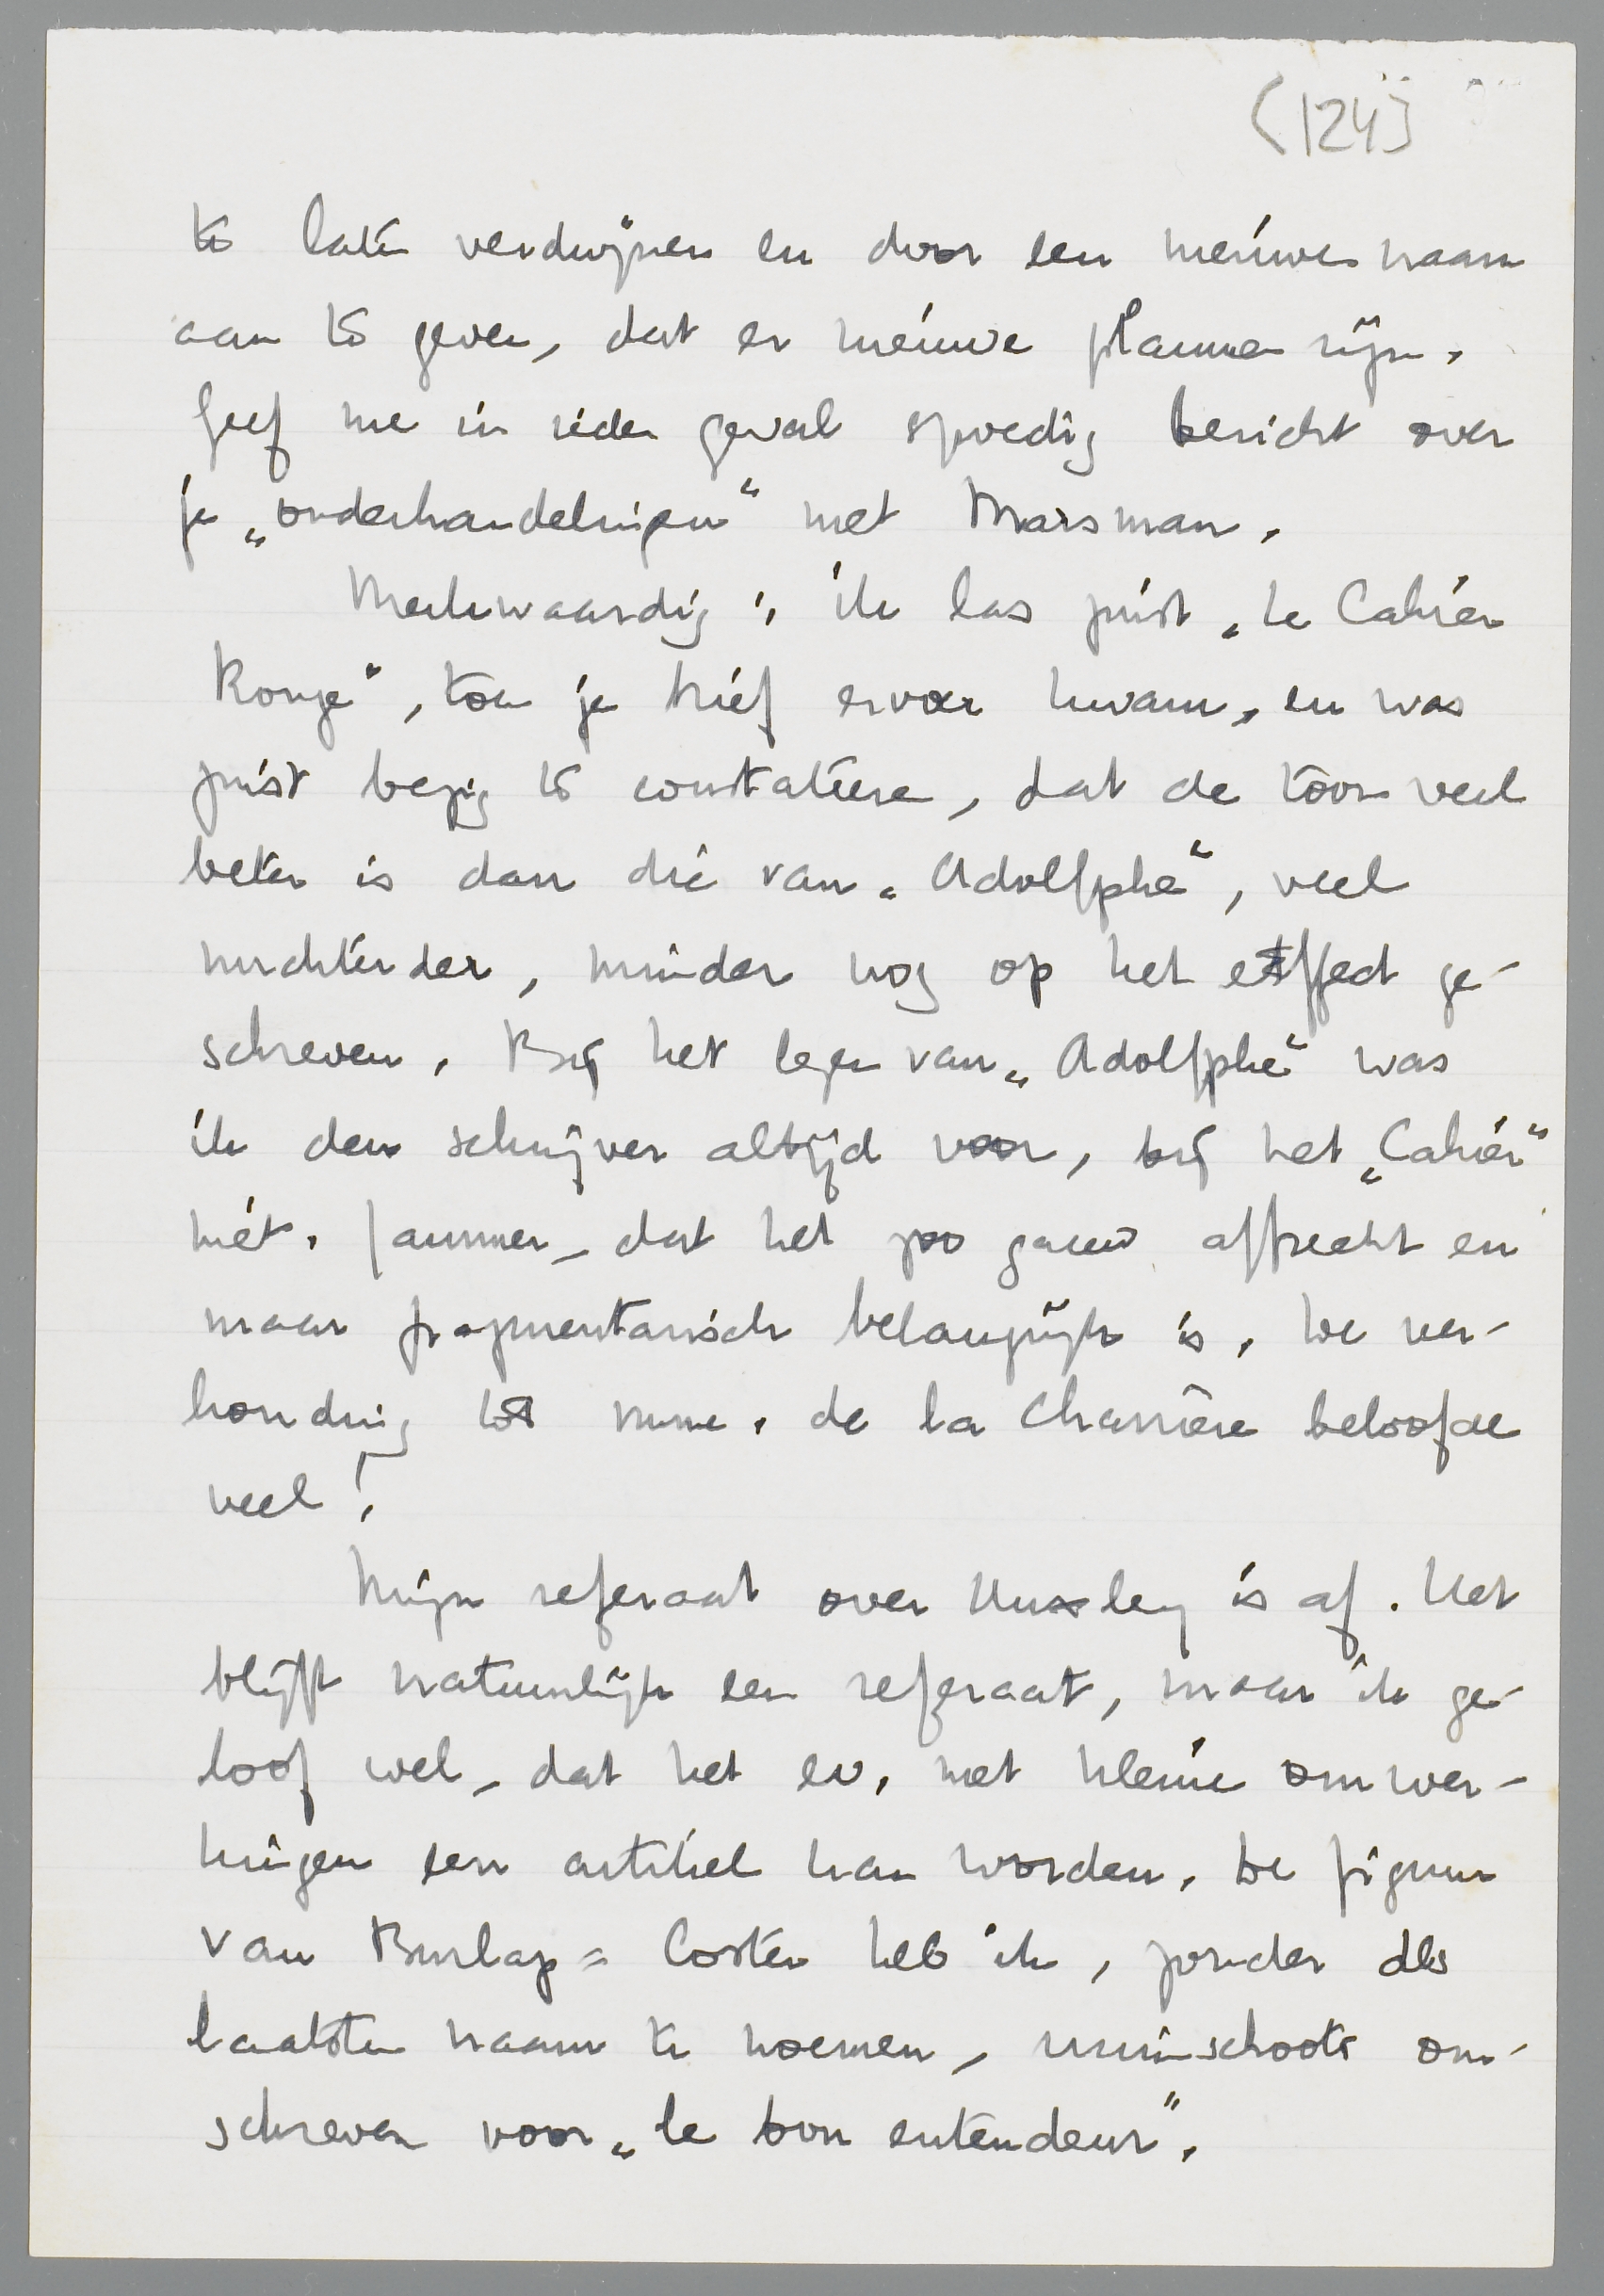 (124)
te laten verdwijnen en door een nieuwe naam
aan te geven, dat er nieuwe plannen zijn.
Geef me in ieder geval spoedig bericht over
je „onderhandelingen“ met Marsman.
Merkwaardig: ik las juist „Le Cahier
Rouge“, toen je brief ervoor kwam, en was
juist bezig te constateeren, dat de toon veel
beter is dan die van „Adolphe“, veel
nuchterder, minder nog op het effect ge-
schreven. Bij het lezen van „Adolphe“ was
ik den schrijver altijd voor, bij het „Cahier“
niet. Jammer, dat het zoo gauw afbreekt en
maar fragmentarisch belangrijk is. De ver-
houding tot Mme. de la Charrière beloofde
veel!
Mijn referaat over Huxley is af. Het
blijft natuurlijk een referaat, maar ik ge-
loof wel, dat het ev. met kleine omwer-
kingen een artikel kan worden. De figuur
van Burlap = Coster heb ik, zonder des
laatsten naam te noemen, ruimschoots om-
schreven voor „le bon entendeur“.